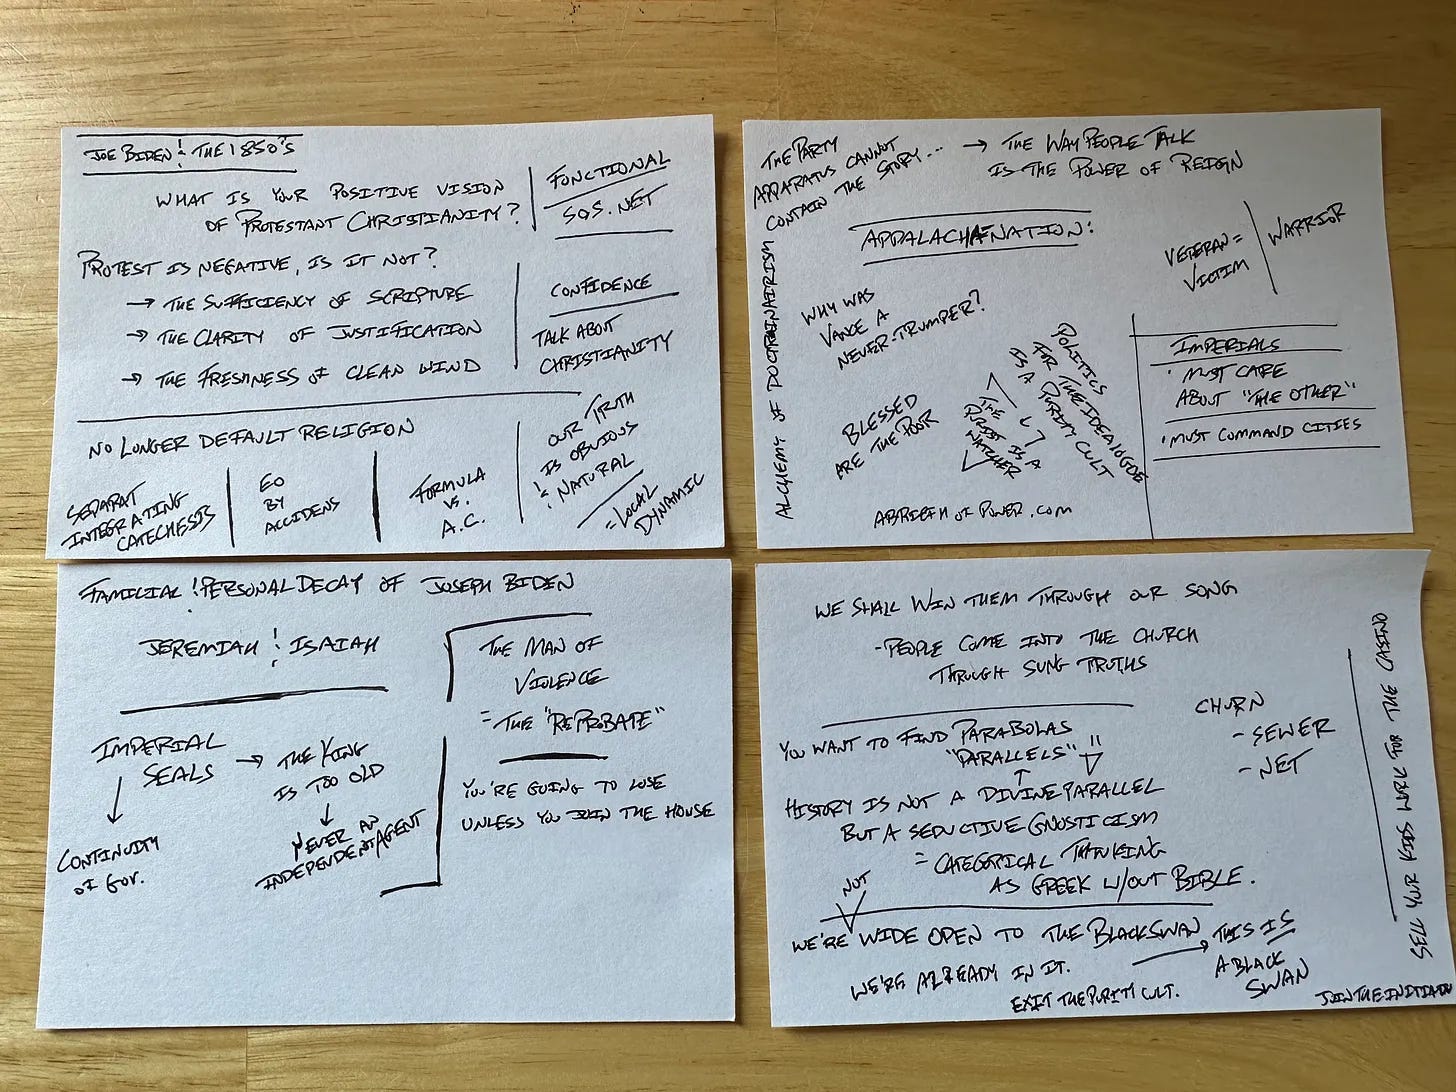 JOE BIDEN & THE 1850'S
WHAT IS YOUR POSITIVE VISION
OF PROTESTANT CHRISTIANITY?
FUNCTIONAL
SQS.NET
PROTEST IS NEGATIVE, IS IT NOT?
→ THE SUFFICIENCY OF SCRIPTURE
→ THE CLARITY OF JUSTIFICATION
→ THE FRESHNESS OF CLEAN WIND
CONFIDENCE
TALK ABOUT
CHRISTIANITY
NO LONGER DEFAULT RELIGION
SEPARAT
INTEGRATING
CATECHESIS
EO
BY
ACCIDENS
FORMULA
VS.
A.C.
OUR TRUTH
IS OBVIOUS
& NATURAL
= LOCAL
DYNAMIC
THE PARTY
APPARATUS CANNOT
CONTAIN THE STORY...
→ THE WAY PEOPLE TALK
IS THE POWER OF REIGN
ALCHEMY OF DOCTRINAIRISM
APPALACHA-NATION:
VETERAN =
VICTIM
WARRIOR
WHY WAS
VANCE A
NEVER-TRUMPER?
BLESSED
ARE THE POOR
POLITICS
FOR THE IDEALOGUE
IS A PURITY CULT
THE
PURIST IS A
WATCHER
IMPERIALS
• MUST CARE
ABOUT "THE OTHER"
• MUST COMMAND CITIES
ABRIEFHOFPOWER.COM
FAMILIAL & PERSONAL DECAY OF JOSEPH BIDEN
JEREMIAH & ISAIAH
IMPERIAL
SEALS
→ THE KING
IS TOO OLD
CONTINUITY
OF GOV.
NEVER AN
INDEPENDENT AGENT
THE MAN OF
VIOLENCE
= THE "REPROBATE"
YOU'RE GOING TO LOSE
UNLESS YOU JOIN THE HOUSE
WE SHALL WIN THEM THROUGH OUR SONG
- PEOPLE COME INTO THE CHURCH
THROUGH SUNG TRUTHS
CHURN
- SEWER
- NET
YOU WANT TO FIND PARABOLAS
"PARALLELS"
HISTORY IS NOT A DIVINE PARALLEL
BUT A SEDUCTIVE GNOSTICISM
= CATEGORICAL THINKING
AS GREEK W/OUT BIBLE.
NOT
WE'RE WIDE OPEN TO THE BLACK SWAN
WE'RE ALREADY IN IT.
→ THIS IS
A BLACK
SWAN
EXIT THE PURITY CULT.
SELL YOUR KIDS WORK FOR THE CASINO